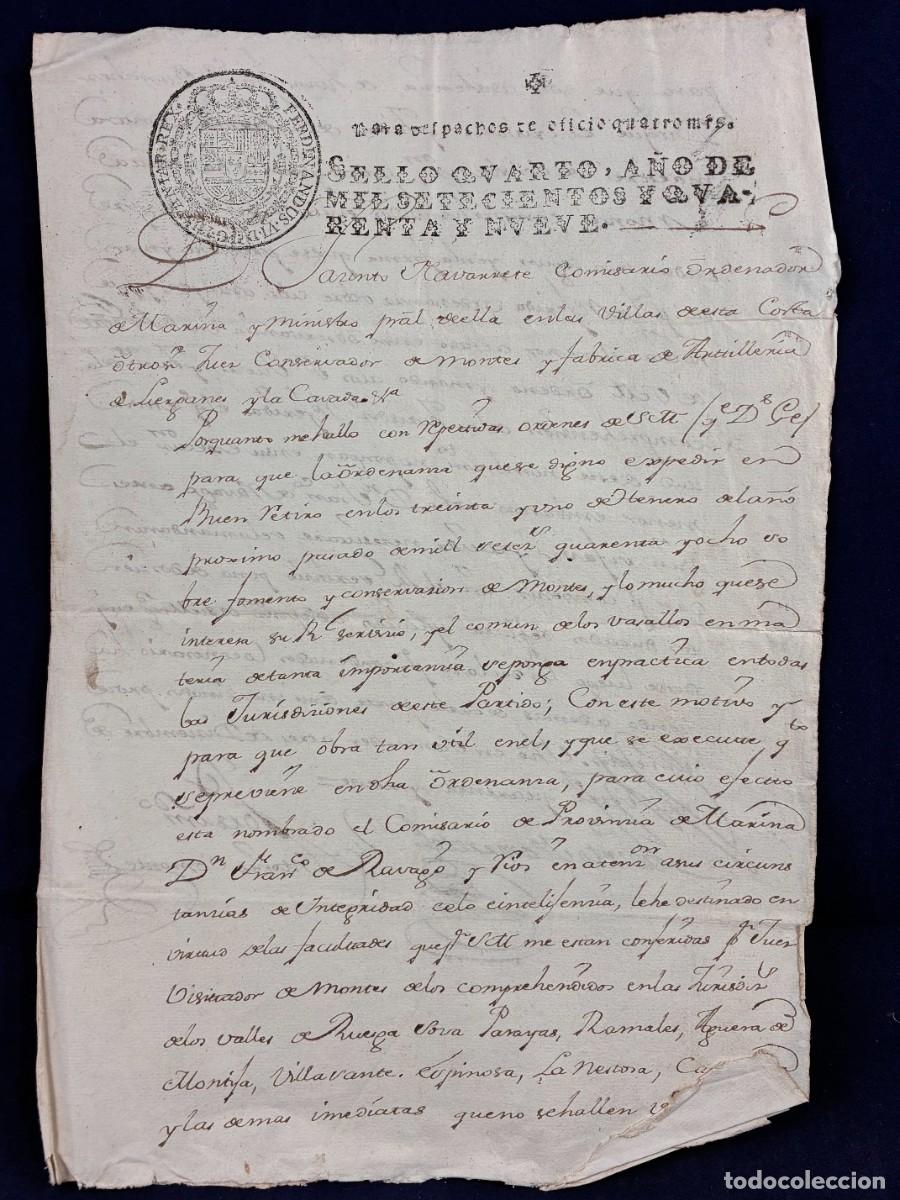 FERDINANDUS.VI.D.G. REX.
Para despachos de oficio quatro mrs.
SELLO QVARTO, AÑO DE
MIL SETECIENTOS Y QVA-
RENTA Y NVEVE.
Navarrete Comisario Ordenador
de Marina y Ministro pral de ella en las Villas de esta Costa
Juez Conservador de Montes y fabrica de Artilleria
de Lierganes y la Cavada &a
Porquanto me hallo con repetidas ordenes de S M (q e D s Ge)
para que la Ordenanza que se digno expedir en
Buen Retiro en los treinta y uno de henero del año
proximo pasado de mill setez s quarenta y ocho so
bre fomento y conservazion de Montes, y lo mucho que se
interesa su R l servicio, y el comun de los vasallos en ma
teria de tanta importanzia se ponga en practica en todas
las Jurisdiziones de este Partido; Con este motivo y
para que obra tan util en el, y que se execute q to
se previene en dha Ordenanza, para cuio efecto
esta nombrado el Comisario de Provinzia de Marina
D n Fran co de Ravago y Rios en atenz on a sus circuns
tanzias de Integridad celo e intelijenzia, le he destinado en
virtud de las facultades que p r S M me estan conferidas p r Juez
Visitador de Montes de los comprehendidos en las Jurisdiz s
de los valles de Ruesga Sova Parayas, Ramales, Aguera de
Montija, Villasante, Espinosa, La Nestosa,
y las demas imediatas que no se hallen
todocoleccion